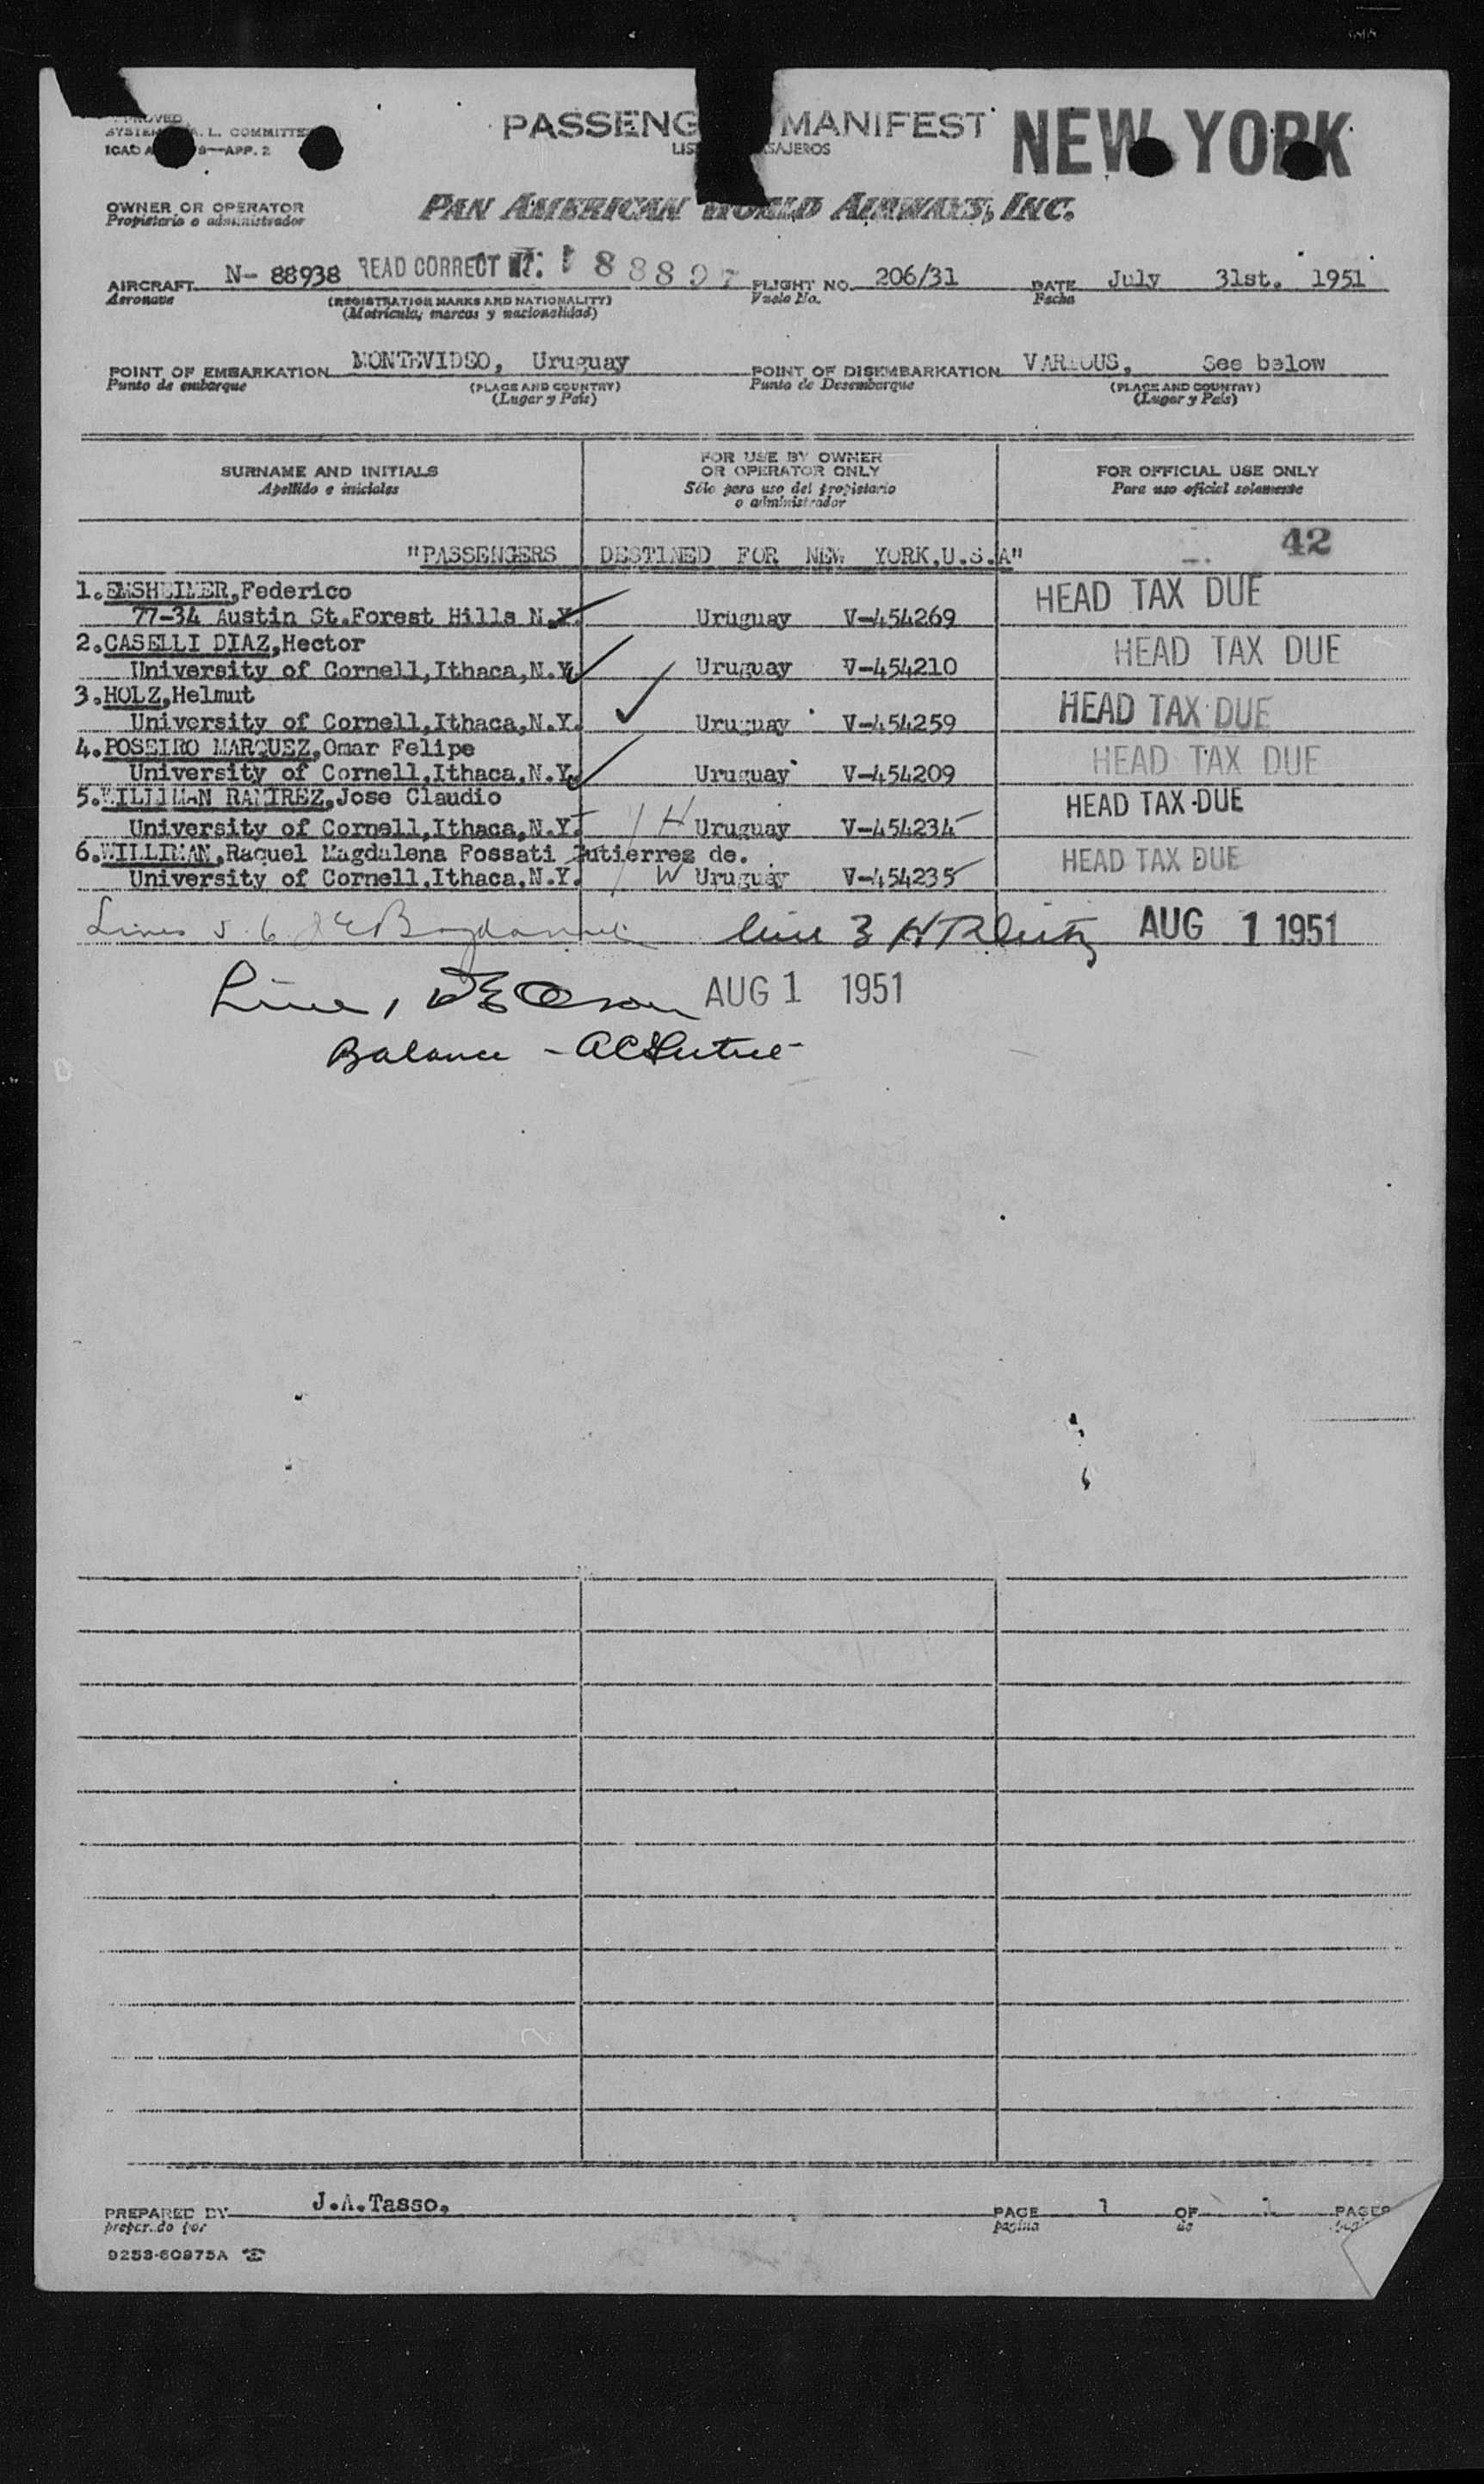 PASSENG MANIFEST NEW YORK
SYSTEM A. L. COMMITTE
LIS SAJEROS
ICAO A 9—APP. 2
OWNER OR OPERATOR
Propietario o administrador
PAN AMERICAN WORLD AIRWAYS, INC.
AIRCRAFT N- 88938 READ CORRECT FLIGHT NO. 206/31 DATE July 31st. 1951
Aeronave (REGISTRATION MARKS AND NATIONALITY) Vuelo No. Fecha
(Matricula, marcas y nacionalidad)
POINT OF EMBARKATION MONTEVIDEO, Uruguay POINT OF DISEMBARKATION VARIOUS, See below
Punto de embarque (PLACE AND COUNTRY) Punto de Desembarque (PLACE AND COUNTRY)
(Lugar y Pais) (Lugar y Pais)
SURNAME AND INITIALS FOR USE BY OWNER OR OPERATOR ONLY FOR OFFICIAL USE ONLY
Apellido e iniciales Sólo para uso del propietario o administrador Para uso oficial solamente
"PASSENGERS DESTINED FOR NEW YORK,U.S.A" 42
1.EMSHEIMER,Federico HEAD TAX DUE
77-34 Austin St.Forest Hills N.Y. Uruguay V-454269
2.CASELLI DIAZ,Hector HEAD TAX DUE
University of Cornell,Ithaca,N.Y. Uruguay V-454210
3.HOLZ,Helmut HEAD TAX DUE
University of Cornell,Ithaca,N.Y. Uruguay V-454259
4.POSEIRO MARQUEZ,Omar Felipe HEAD TAX DUE
University of Cornell,Ithaca,N.Y. Uruguay V-454209
5.WILLIMAN RAMIREZ,Jose Claudio HEAD TAX DUE
University of Cornell,Ithaca,N.Y. H Uruguay V-454234
6.WILLIMAN,Raquel Magdalena Fossati Gutierrez de. HEAD TAX DUE
University of Cornell,Ithaca,N.Y. W Uruguay V-454235
Lines 5 6 line 3 AUG 1 1951
Line 1 AUG 1 1951
Balance -
PREPARED BY J.A.Tasso, PAGE 1 OF 1 PAGES
preparado por pagina de
9253-60975A